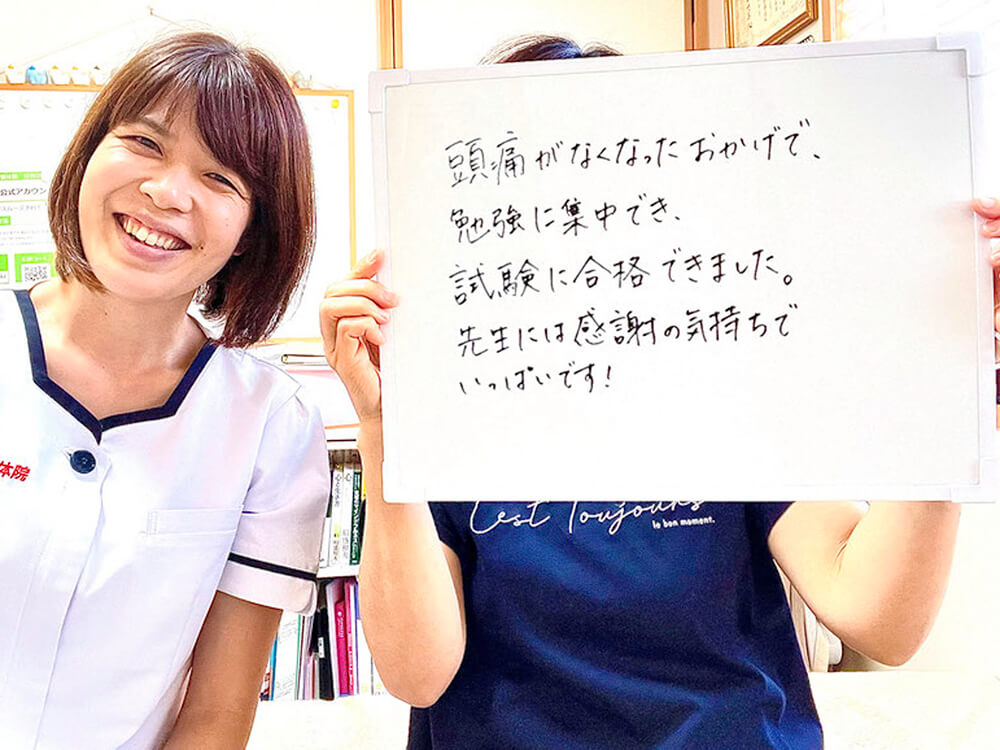 頭痛がなくなったおかげで、
勉強に集中でき、
試験に合格できました。
先生には感謝の気持ちで
いっぱいです!
C'est Toujours
le bon moment.
体院
公式アカウン